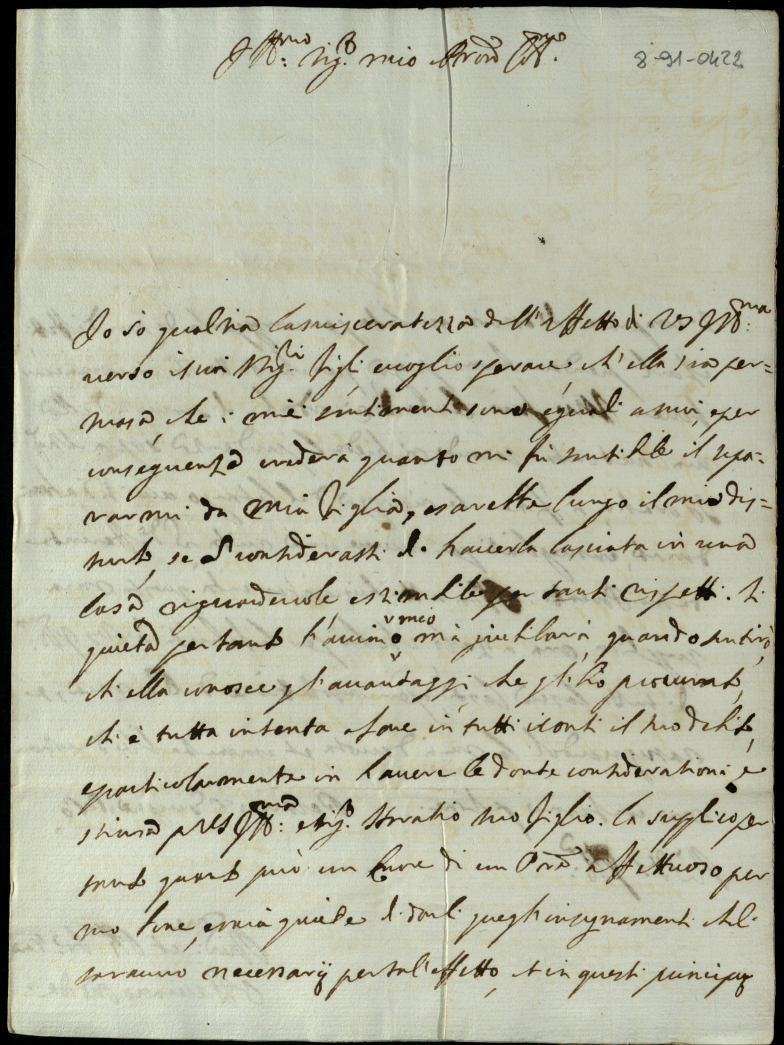 Ill.mo Sig.r mio Pron Col.mo
8-91-0422
Io sò qual sia la suisceratezza dell'affetto di VS Ill.ma
uerso i suoi Sig.ri figli, e uoglio sperare, ch'ella sia per=
suasa, che i miei sentimenti sono eguali a suoi, e per
conseguenza crederà quanto mi fù sensibile il sepa=
rarmi da mia figlia, e sarebbe lungo il mio dis=
turbo, se non considerassi di hauerla lasciata in una
casa riguardeuole e stimabile per tanti rispetti. Si
quieta per tanto l'animo mio mà giubilarà, quando sentirò,
ch'ella conosce gl'auantaggi, che gl'hò procurato,
ch'è tutta intenta a fare in tutti i conti il suo debito,
e particolarmente in hauere le douute considerationi, e
stima p VS Ill.ma e Sig.r Horatio suo figlio. La supplico per
tanto quanto può un Cuore di un Pre affettuoso per
suo bene, e mia quiete di darli quegl'insegnamenti che li
saranno necessarij per tal'effetto, et in questi principij